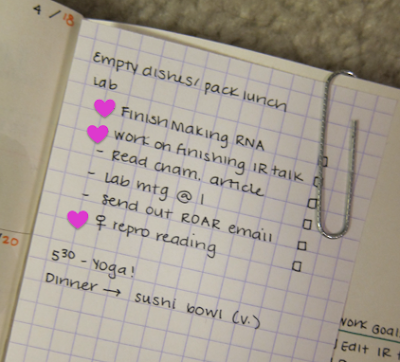 4/13
Empty dishes/pack lunch
Lab
Finish Making RNA
work on finishing IR talk
- Read cham. article
- Lab mtg @ 1
- send out ROAR email
♀ repro reading
5³⁰ - Yoga!
Dinner → sushi bowl (v.)
/20
Work Goal
Edit IR